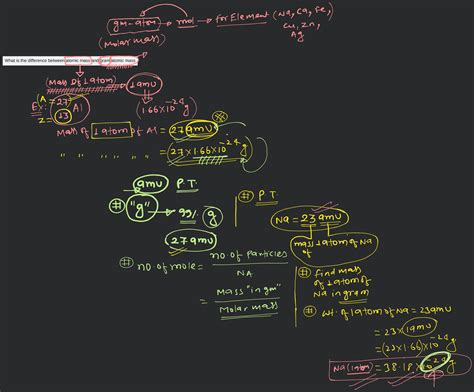 gm-atom → mol → for Element (Na, Ca, Fe,
Cu, Zn,
Ag
(Molar mass)
What is the difference between atomic mass and gram atomic mass
(Mass of 1 atom) 1amu
(A = 27
Ex: 13 Al (1.66×10^-24 g)
Z =
Mass of 1 atom of Al = 27 amu
" " " " " = (27×1.66×10^-24 g
amu P.T.
# "g" → g
(27 amu)
# no. of mole = no. of particles / NA
= Mass "in gm" / Molar mass
# P.T
Na = 23 amu
mass of 1 atom of Na
# find mass
of 1 atom of
Na in gram
# wt. of 1 atom of Na = 23amu
= 23×1amu
= (23×1.66)×10^-24 g
Na (1 atom) = 38.18 × 10^-24 g